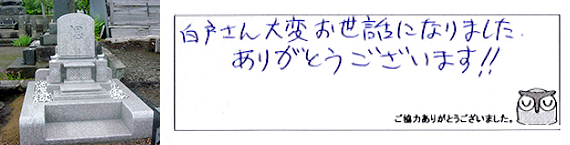 白戸さん大変お世話になりました.
ありがとうございます!!
ご協力ありがとうございました。